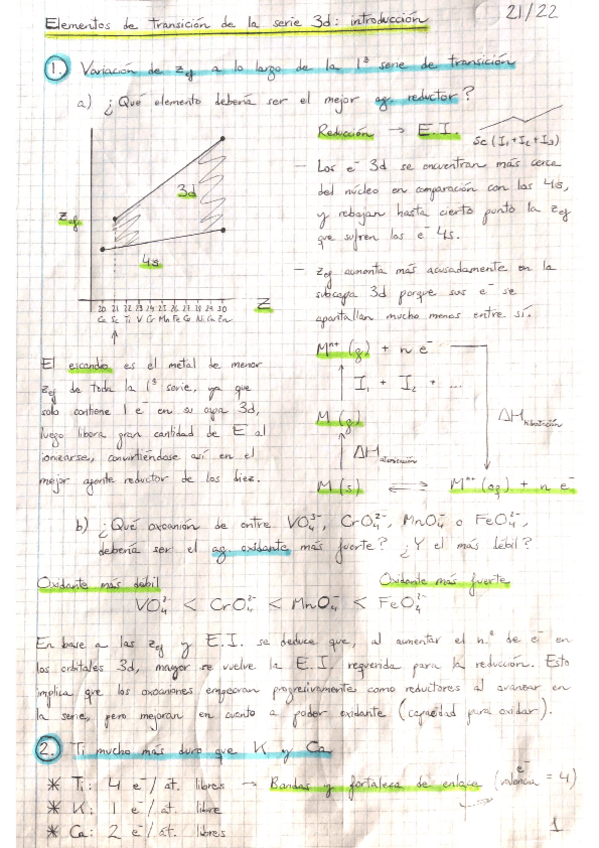 Elementos de transición de la serie 3d: introducción
21/22
1. Variación de Zef a lo largo de la 1ª serie de transición
a) ¿Qué elemento debería ser el mejor ag. reductor?
Zef
3d
4s
20 21 22 23 24 25 26 27 28 29 30
Ca Sc Ti V Cr Mn Fe Co Ni Cu Zn
Z
Reducción → E.I.
Sc (I₁+I₂+I₃)
– Los e⁻ 3d se encuentran más cerca
del núcleo en comparación con los 4s,
y rebajan hasta cierto punto la Zef
que sufren los e⁻ 4s.
– Zef aumenta más acusadamente en la
subcapa 3d porque sus e⁻ se
apantallan mucho menos entre sí.
El escandio es el metal de menor
Zef de toda la 1ª serie, ya que
solo contiene 1 e⁻ en su capa 3d,
luego libera gran cantidad de E al
ionizarse, convirtiéndose así en el
mejor agente reductor de los diez.
Mⁿ⁺ (g) + n e⁻
I₁ + I₂ + ...
M (g)
ΔH
ΔHhidratación
M (s) ⇌ Mⁿ⁺ (aq) + n e⁻
b) ¿Qué oxoanión de entre VO₄³⁻, CrO₄²⁻, MnO₄⁻ o FeO₄²⁻,
debería ser el ag. oxidante más fuerte? ¿Y el más débil?
Oxidante más débil
Oxidante más fuerte
VO₄³⁻ < CrO₄²⁻ < MnO₄⁻ < FeO₄²⁻
En base a las Zef y E.I. se deduce que, al aumentar el n.º de e⁻ en
los orbitales 3d, mayor se vuelve la E.I. requerida para la reducción. Esto
implica que los oxoaniones empeoran progresivamente como reductores al avanzar en
la serie, pero mejoran en cuanto a poder oxidante (capacidad para oxidar).
2. Ti mucho más duro que K y Ca
* Ti: 4 e⁻/ át. libres → Bandas y fortaleza de enlace (e⁻ valencia = 4)
* K: 1 e⁻/ át. libre
* Ca: 2 e⁻/ át. libres
1